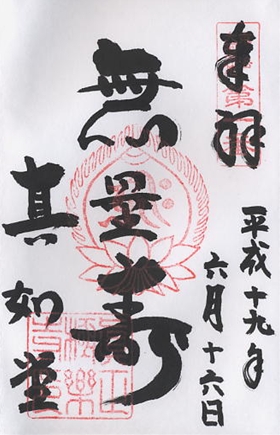 奉拝
平成十九年
六月十六日
無量寿
真如堂